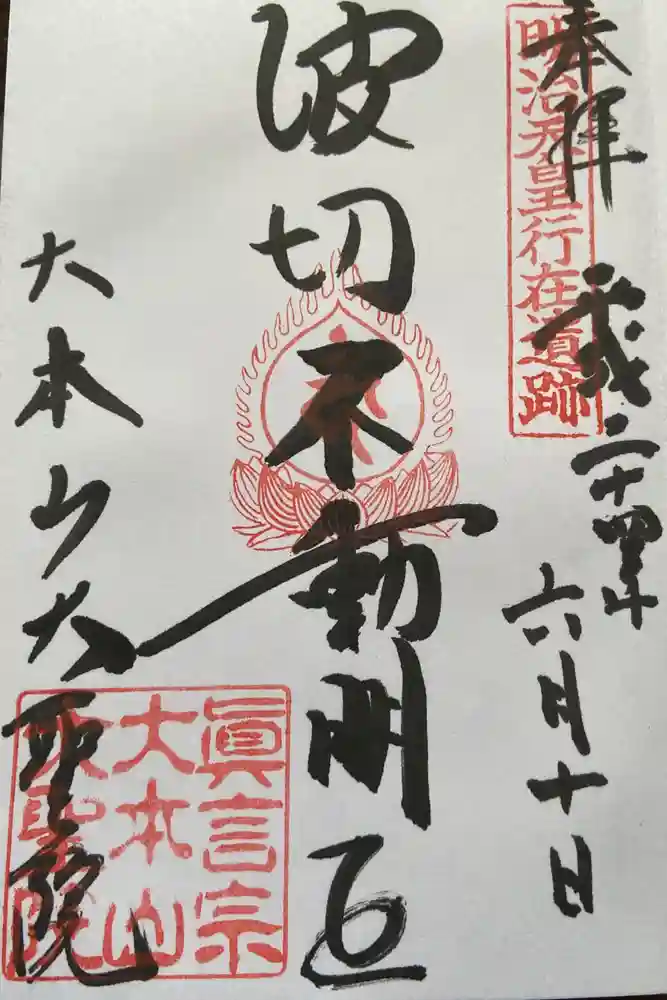 奉拝
明治天皇行在遺跡
平成二十四年
六月十日
波切不動明王
大本山大聖院
眞言宗
大本山
大聖院